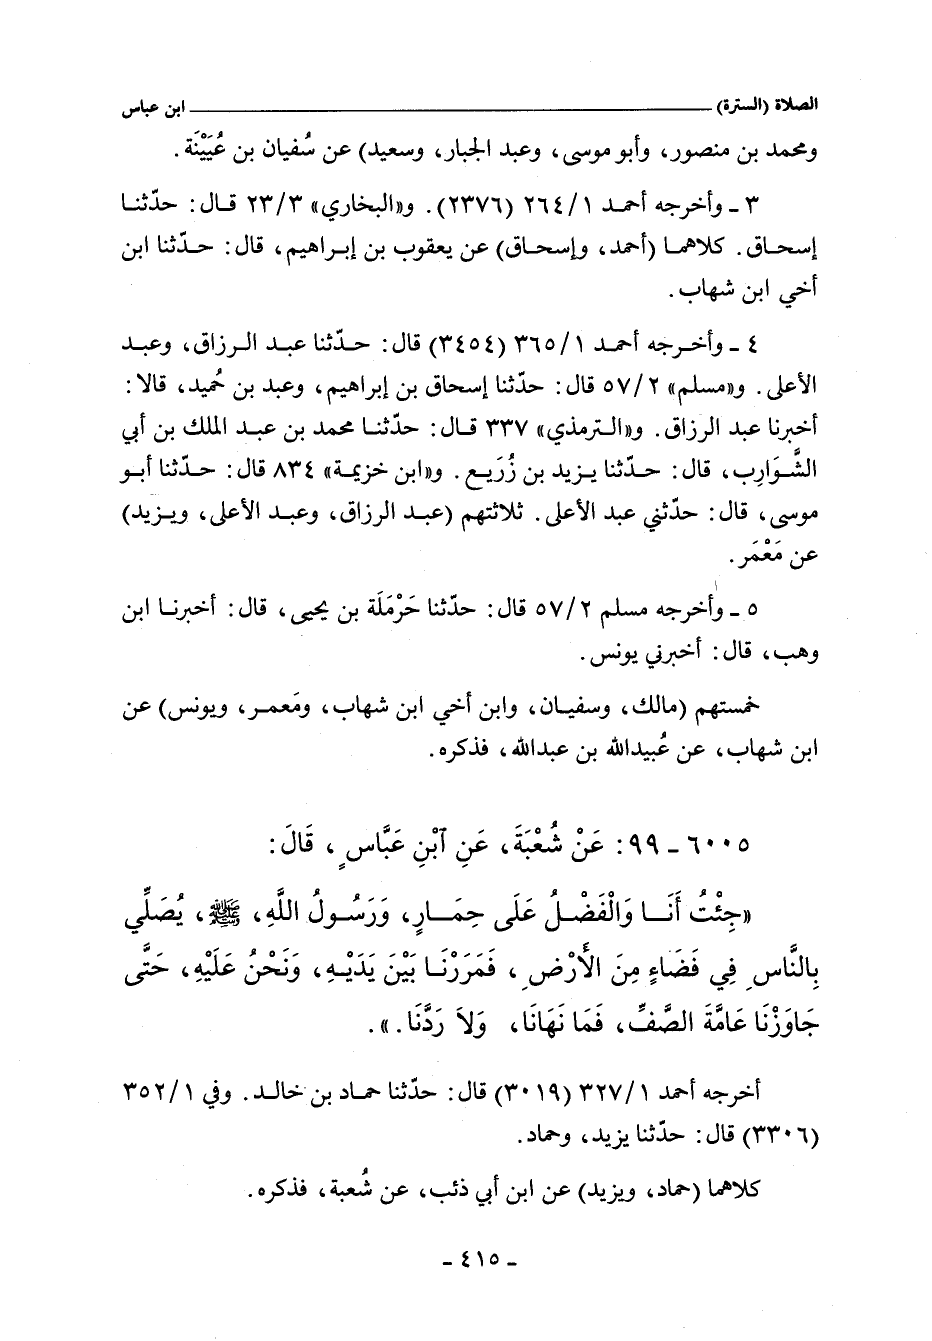 الصلاة (السترة) ـــــــ ابن عباس
ومحمد بن منصور، وأبو موسى، وعبد الجبار، وسعيد) عن سُفيان بن عُيَيْنَة.
٣ ـ وأخرجه أحمد ١/٢٦٤ (٢٣٧٦). و«البخاري» ٣/٢٣ قال: حدّثنا
إسحاق. كلاهما (أحمد، وإسحاق) عن يعقوب بن إبراهيم، قال: حدّثنا ابن
أخي ابن شهاب.
٤ ـ وأخرجه أحمد ١/٣٦٥ (٣٤٥٤) قال: حدّثنا عبد الرزاق، وعبد
الأعلى. و«مسلم» ٢/٥٧ قال: حدّثنا إسحاق بن إبراهيم، وعبد بن حُميد، قالا:
أخبرنا عبد الرزاق. و«الترمذي» ٣٣٧ قال: حدّثنا محمد بن عبد الملك بن أبي
الشَّوَارِب، قال: حدّثنا يزيد بن زُرَيع. و«ابن خزيمة» ٨٣٤ قال: حدّثنا أبو
موسى، قال: حدّثني عبد الأعلى. ثلاثتهم (عبد الرزاق، وعبد الأعلى، ويزيد)
عن مَعْمَر.
٥ ـ وأخرجه مسلم ٢/٥٧ قال: حدّثنا حَرْمَلَة بن يحيى، قال: أخبرنا ابن
وهب، قال: أخبرني يونس.
خمستهم (مالك، وسفيان، وابن أخي ابن شهاب، ومَعمر، ويونس) عن
ابن شهاب، عن عُبيدالله بن عبدالله، فذكره.
٦٠٠٥ ـ ٩٩: عَنْ شُعْبَةَ، عَنِ ٱبْنِ عَبَّاسٍ، قَالَ:
«جِئْتُ أَنَا وَالْفَضْلُ عَلَى حِمَارٍ، وَرَسُولُ اللَّهِ، ﷺ، يُصَلِّي
بِالنَّاسِ فِي فَضَاءٍ مِنَ الْأَرْضِ، فَمَرَرْنَا بَيْنَ يَدَيْهِ، وَنَحْنُ عَلَيْهِ، حَتَّى
جَاوَزْنَا عَامَّةَ الصَّفِّ، فَمَا نَهَانَا، وَلاَ رَدَّنَا.».
أخرجه أحمد ١/٣٢٧ (٣٠١٩) قال: حدّثنا حماد بن خالد. وفي ١/٣٥٢
(٣٣٠٦) قال: حدّثنا يزيد، وحماد.
كلاهما (حماد، ويزيد) عن ابن أبي ذئب، عن شُعبة، فذكره.
ـ ٤١٥ ـ